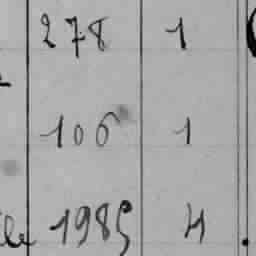 278 1
106 1
1985 4